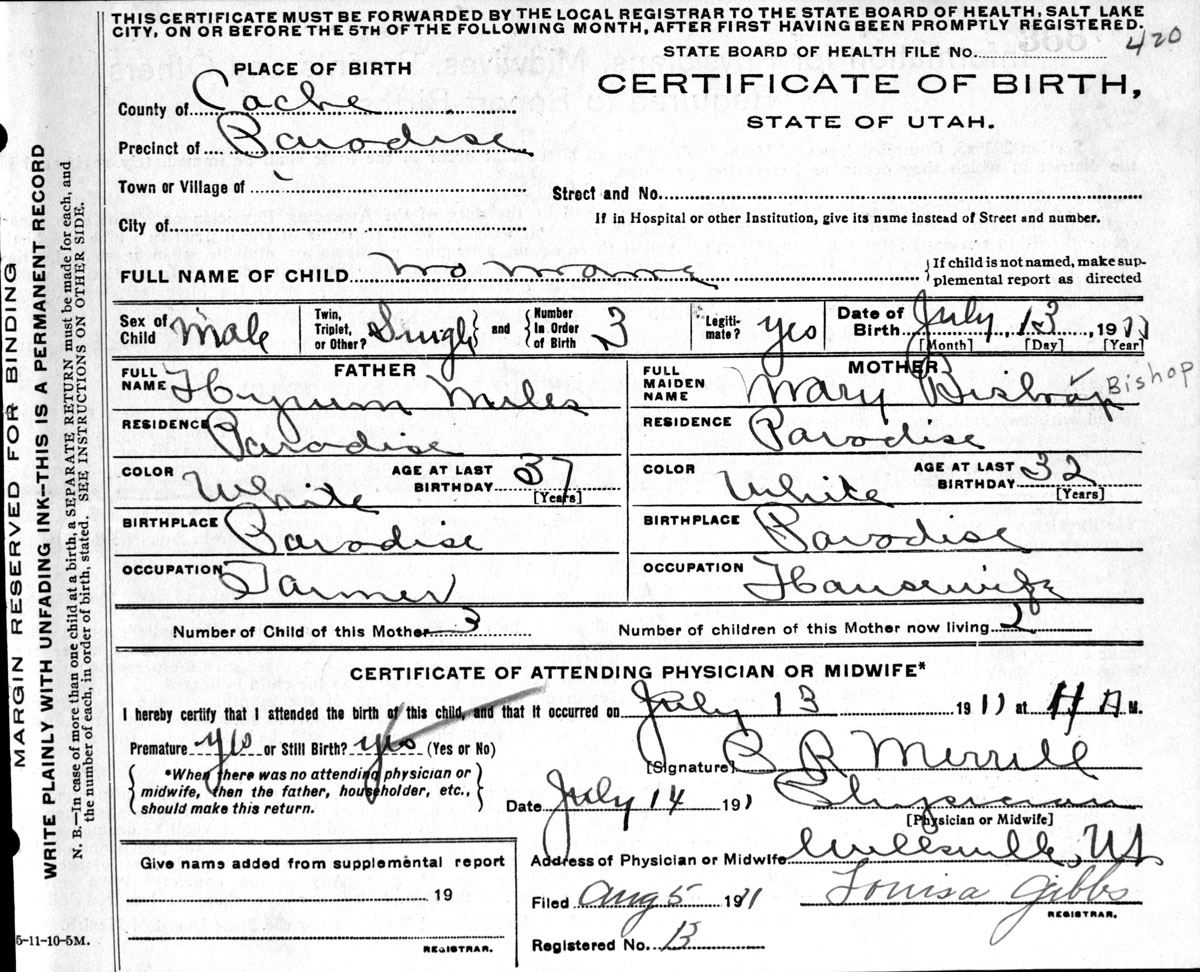 THIS CERTIFICATE MUST BE FORWARDED BY THE LOCAL REGISTRAR TO THE STATE BOARD OF HEALTH, SALT LAKE
CITY, ON OR BEFORE THE 5TH OF THE FOLLOWING MONTH, AFTER FIRST HAVING BEEN PROMPTLY REGISTERED.
STATE BOARD OF HEALTH FILE NO. 420
PLACE OF BIRTH
CERTIFICATE OF BIRTH,
STATE OF UTAH.
County of Cache
Precinct of Paradise
Town or Village of
Street and No.
City of
If in Hospital or other Institution, give its name instead of Street and number.
FULL NAME OF CHILD No Name
{If child is not named, make sup-
plemental report as directed
Sex of Child Male
Twin, Triplet, or Other? Single} and {Number In Order of Birth 3
Legiti-mate? yes
Date of Birth July 13, 1911
[Month] [Day] [Year]
FATHER
MOTHER
FULL NAME Hyrum Miles
FULL MAIDEN NAME Mary Bishop Bishop
RESIDENCE Paradise
RESIDENCE Paradise
COLOR White AGE AT LAST BIRTHDAY 37 [Years]
COLOR White AGE AT LAST BIRTHDAY 32 [Years]
BIRTHPLACE Paradise
BIRTHPLACE Paradise
OCCUPATION Farmer
OCCUPATION Housewife
Number of Child of this Mother 3
Number of children of this Mother now living 2
CERTIFICATE OF ATTENDING PHYSICIAN OR MIDWIFE*
I hereby certify that I attended the birth of this child, and that it occurred on July 13 1911 at A M.
Premature yes or Still Birth? yes (Yes or No)
{*When there was no attending physician or
midwife, then the father, householder, etc.,
should make this return.}
[Signature] Merrill
Date July 14 191 Physician
[Physician or Midwife]
Address of Physician or Midwife Wellsville, Ut
Give name added from supplemental report
19
REGISTRAR.
Filed Aug 5 1911 Louisa Gibbs
REGISTRAR.
Registered No. 13
5-11-10-5M.
MARGIN RESERVED FOR BINDING
WRITE PLAINLY WITH UNFADING INK-THIS IS A PERMANENT RECORD
N. B.—In case of more than one child at a birth, a SEPARATE RETURN must be made for each, and
the number of each, in order of birth, stated. SEE INSTRUCTIONS ON OTHER SIDE.